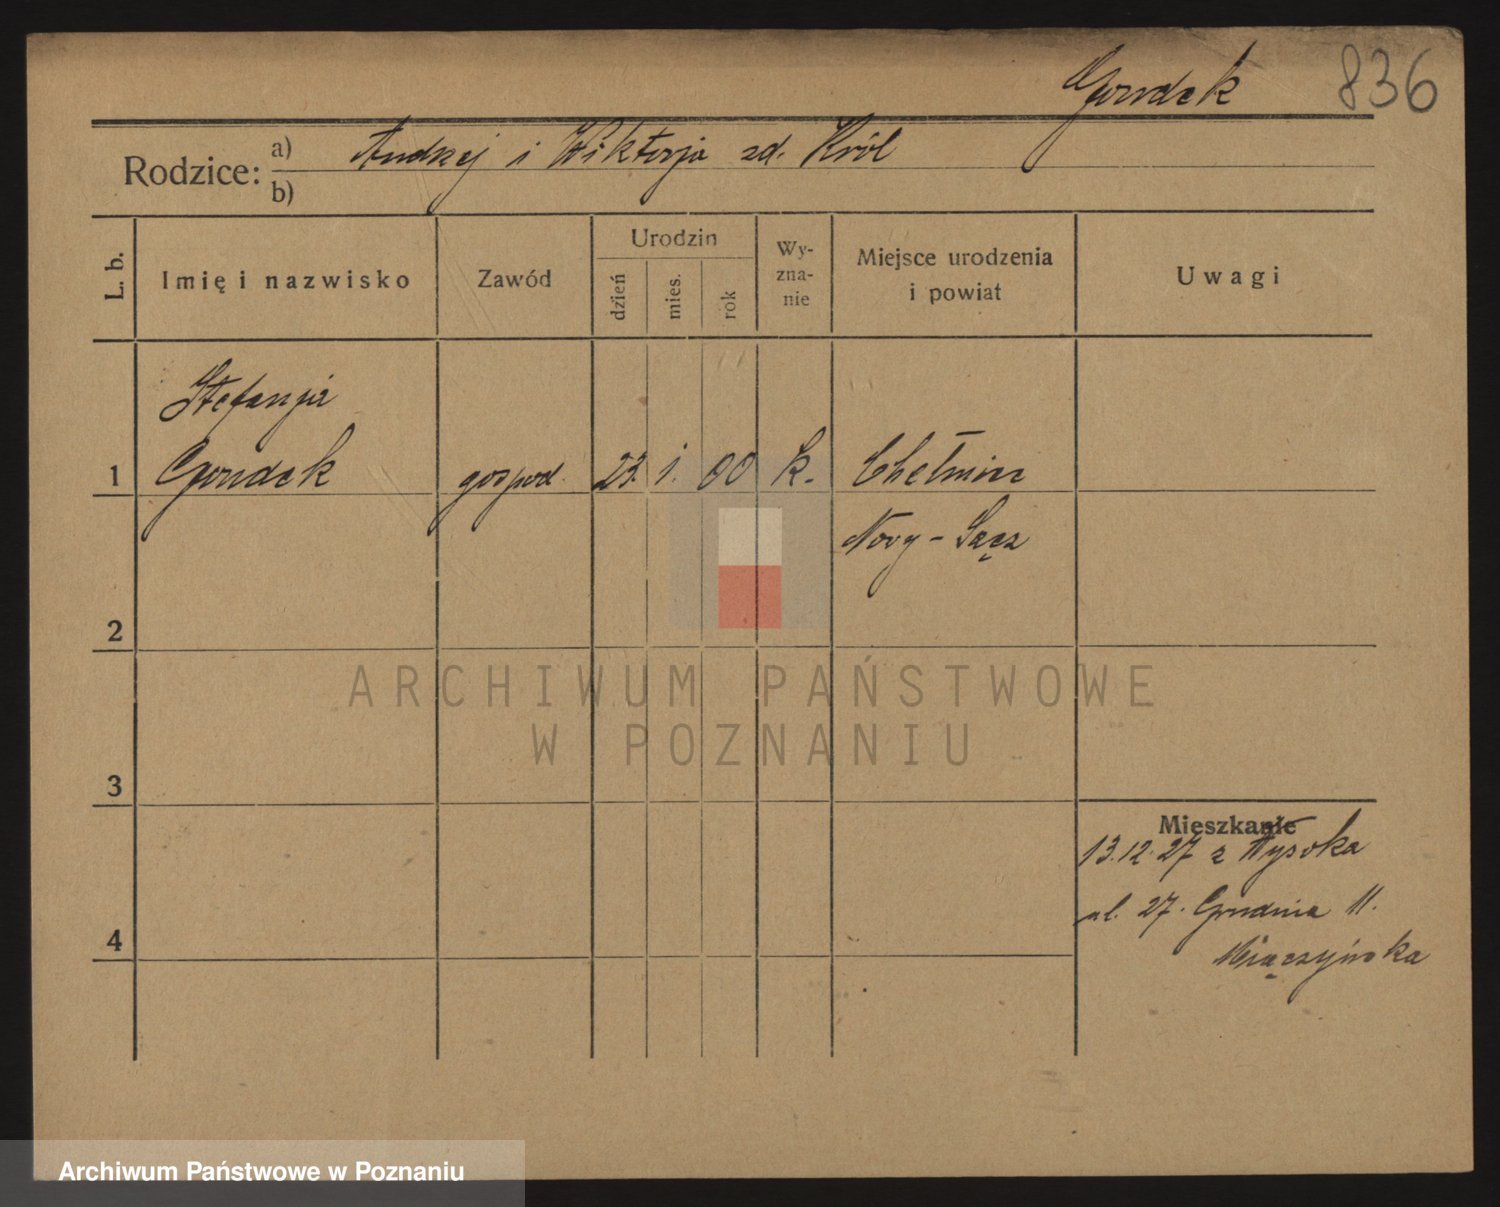 Gondek 836
Rodzice: a) Andrzej i Wiktorja zd. Król
b)
L. b. Imię i nazwisko Zawód Urodzin dzień mies. rok Wy-zna-nie Miejsce urodzenia i powiat Uwagi
Stefanja
1 Gondek gospod. 23. 1. 00 k. Chełmiec
Nowy-Sącz
2
ARCHIWUM PAŃSTWOWE
W POZNANIU
3
Mieszkanie
13.12.27 z Wysoka
ul. 27. Grudnia 11.
4
Archiwum Państwowe w Poznaniu